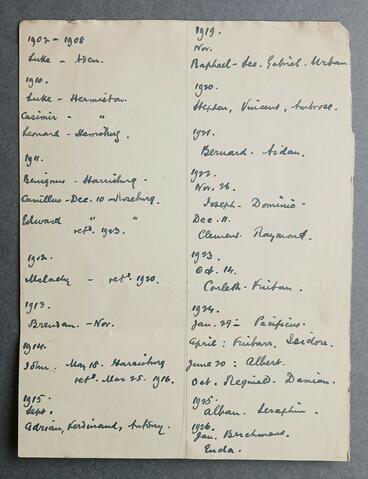 1907 - 1908
Luke - Aden.
1910.
Luke - Hermiston.
Casimir - "
Leonard - Harrisburg.
1911.
Benignus - Harrisburg -
Camillus - Dec. 10 - Roseburg.
Edward " "
retd. 1923.
1912.
Malachy - retd. 1920.
1913.
Brendan - Nov.
1914.
John. May 18. Harrisburg
retd. Mar 25. 1916.
1915.
Sept.
Adrian, Ferdinand, Antony.
1919.
Nov.
Raphael - Leo. Gabriel. Urban
1920.
Stephen, Vincent, Ambrose.
1921.
Bernard - Aidan.
1922.
Nov. 26.
Joseph - Dominic -
Dec. 11.
Clement. Raymond.
1923.
Oct. 14.
Fintan.
1924.
Jan. 29 - Pacificus.
April: Finbarr, Isidore.
June 20: Albert.
Oct. Reginald. Damian.
1925.
Alban. Seraphin.
1926.
Jan. Berchmans.
Enda.